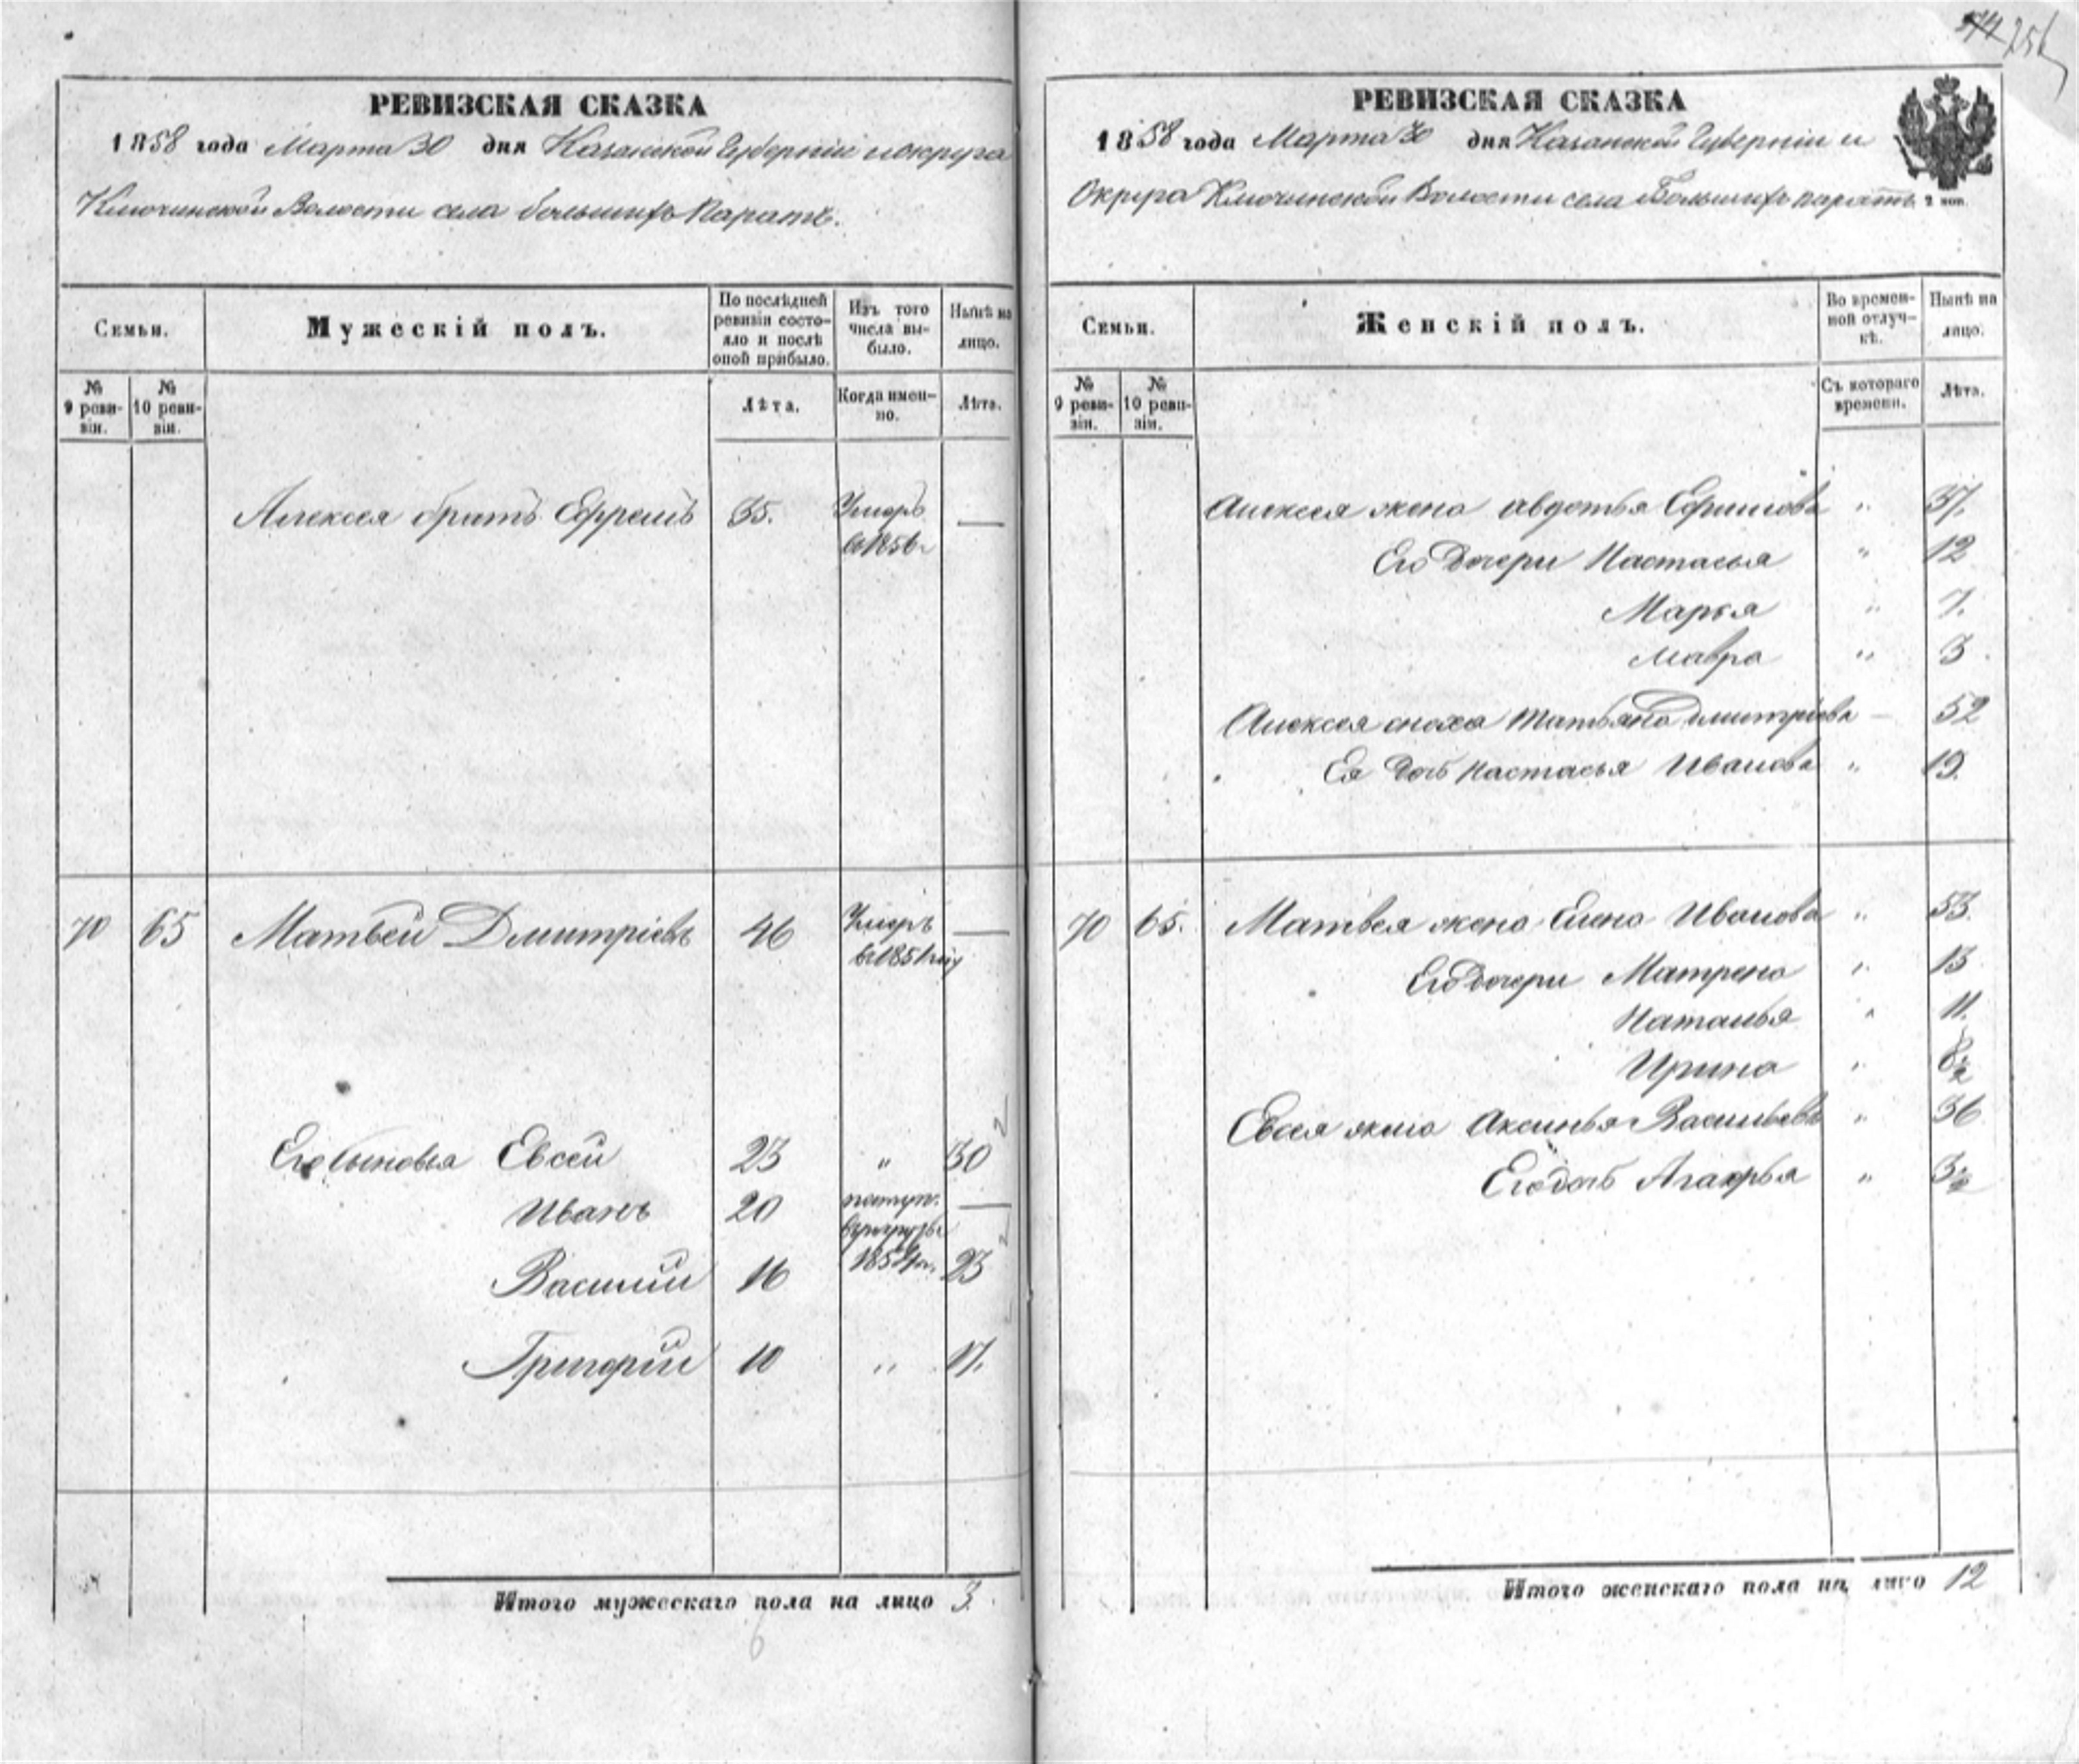 256
РЕВИЗСКАЯ СКАЗКА
1858 года Марта 30 дня Казанской Губерніи и округа
Ключинской Волости села большихъ Паратъ.
Семьи.
Мужескій полъ.
По послѣдней ревизіи состояло и послѣ оной прибыло.
Изъ того числа выбыло.
Нынѣ на лицо.
№ 9 ревизіи.
№ 10 ревизіи.
Лѣта.
Когда именно.
Лѣта.
Алексея братъ Ефремъ 35. Умеръ —
в 1856
70 65 Матвей Дмитріевъ 46 Умеръ —
в 1851 году
Его сыновья Евсей 23 " 30
Иванъ 20 поступ. —
в рекруты
Василий 16 1854 23
Григорій 10 " 17.
Итого мужескаго пола на лицо 3.
6
РЕВИЗСКАЯ СКАЗКА
1858 года Марта 30 дня Казанской Губерніи и
Округа Ключинской Волости села Большихъ паратъ.
2 коп.
Семьи.
Женскій полъ.
Во временной отлучкѣ.
Нынѣ на лицо.
№ 9 ревизіи.
№ 10 ревизіи.
Съ котораго времени.
Лѣта.
Алексея жена Авдотья Ефимова " 37.
Его Дочери Настасья " 12
Марья " 7.
Мавра " 3
Алексея сноха Татьяна Дмитриева — 52
Ея Дочь Настасья Иванова " 19.
70 65. Матвея жена Елена Иванова " 53.
Его дочери Матрена " 13
Наталья " 11.
Ирина " 8½
Евсея жена Аксинья Васильева " 36
Его дочь Агафья " 3½
Итого женскаго пола на лицо 12